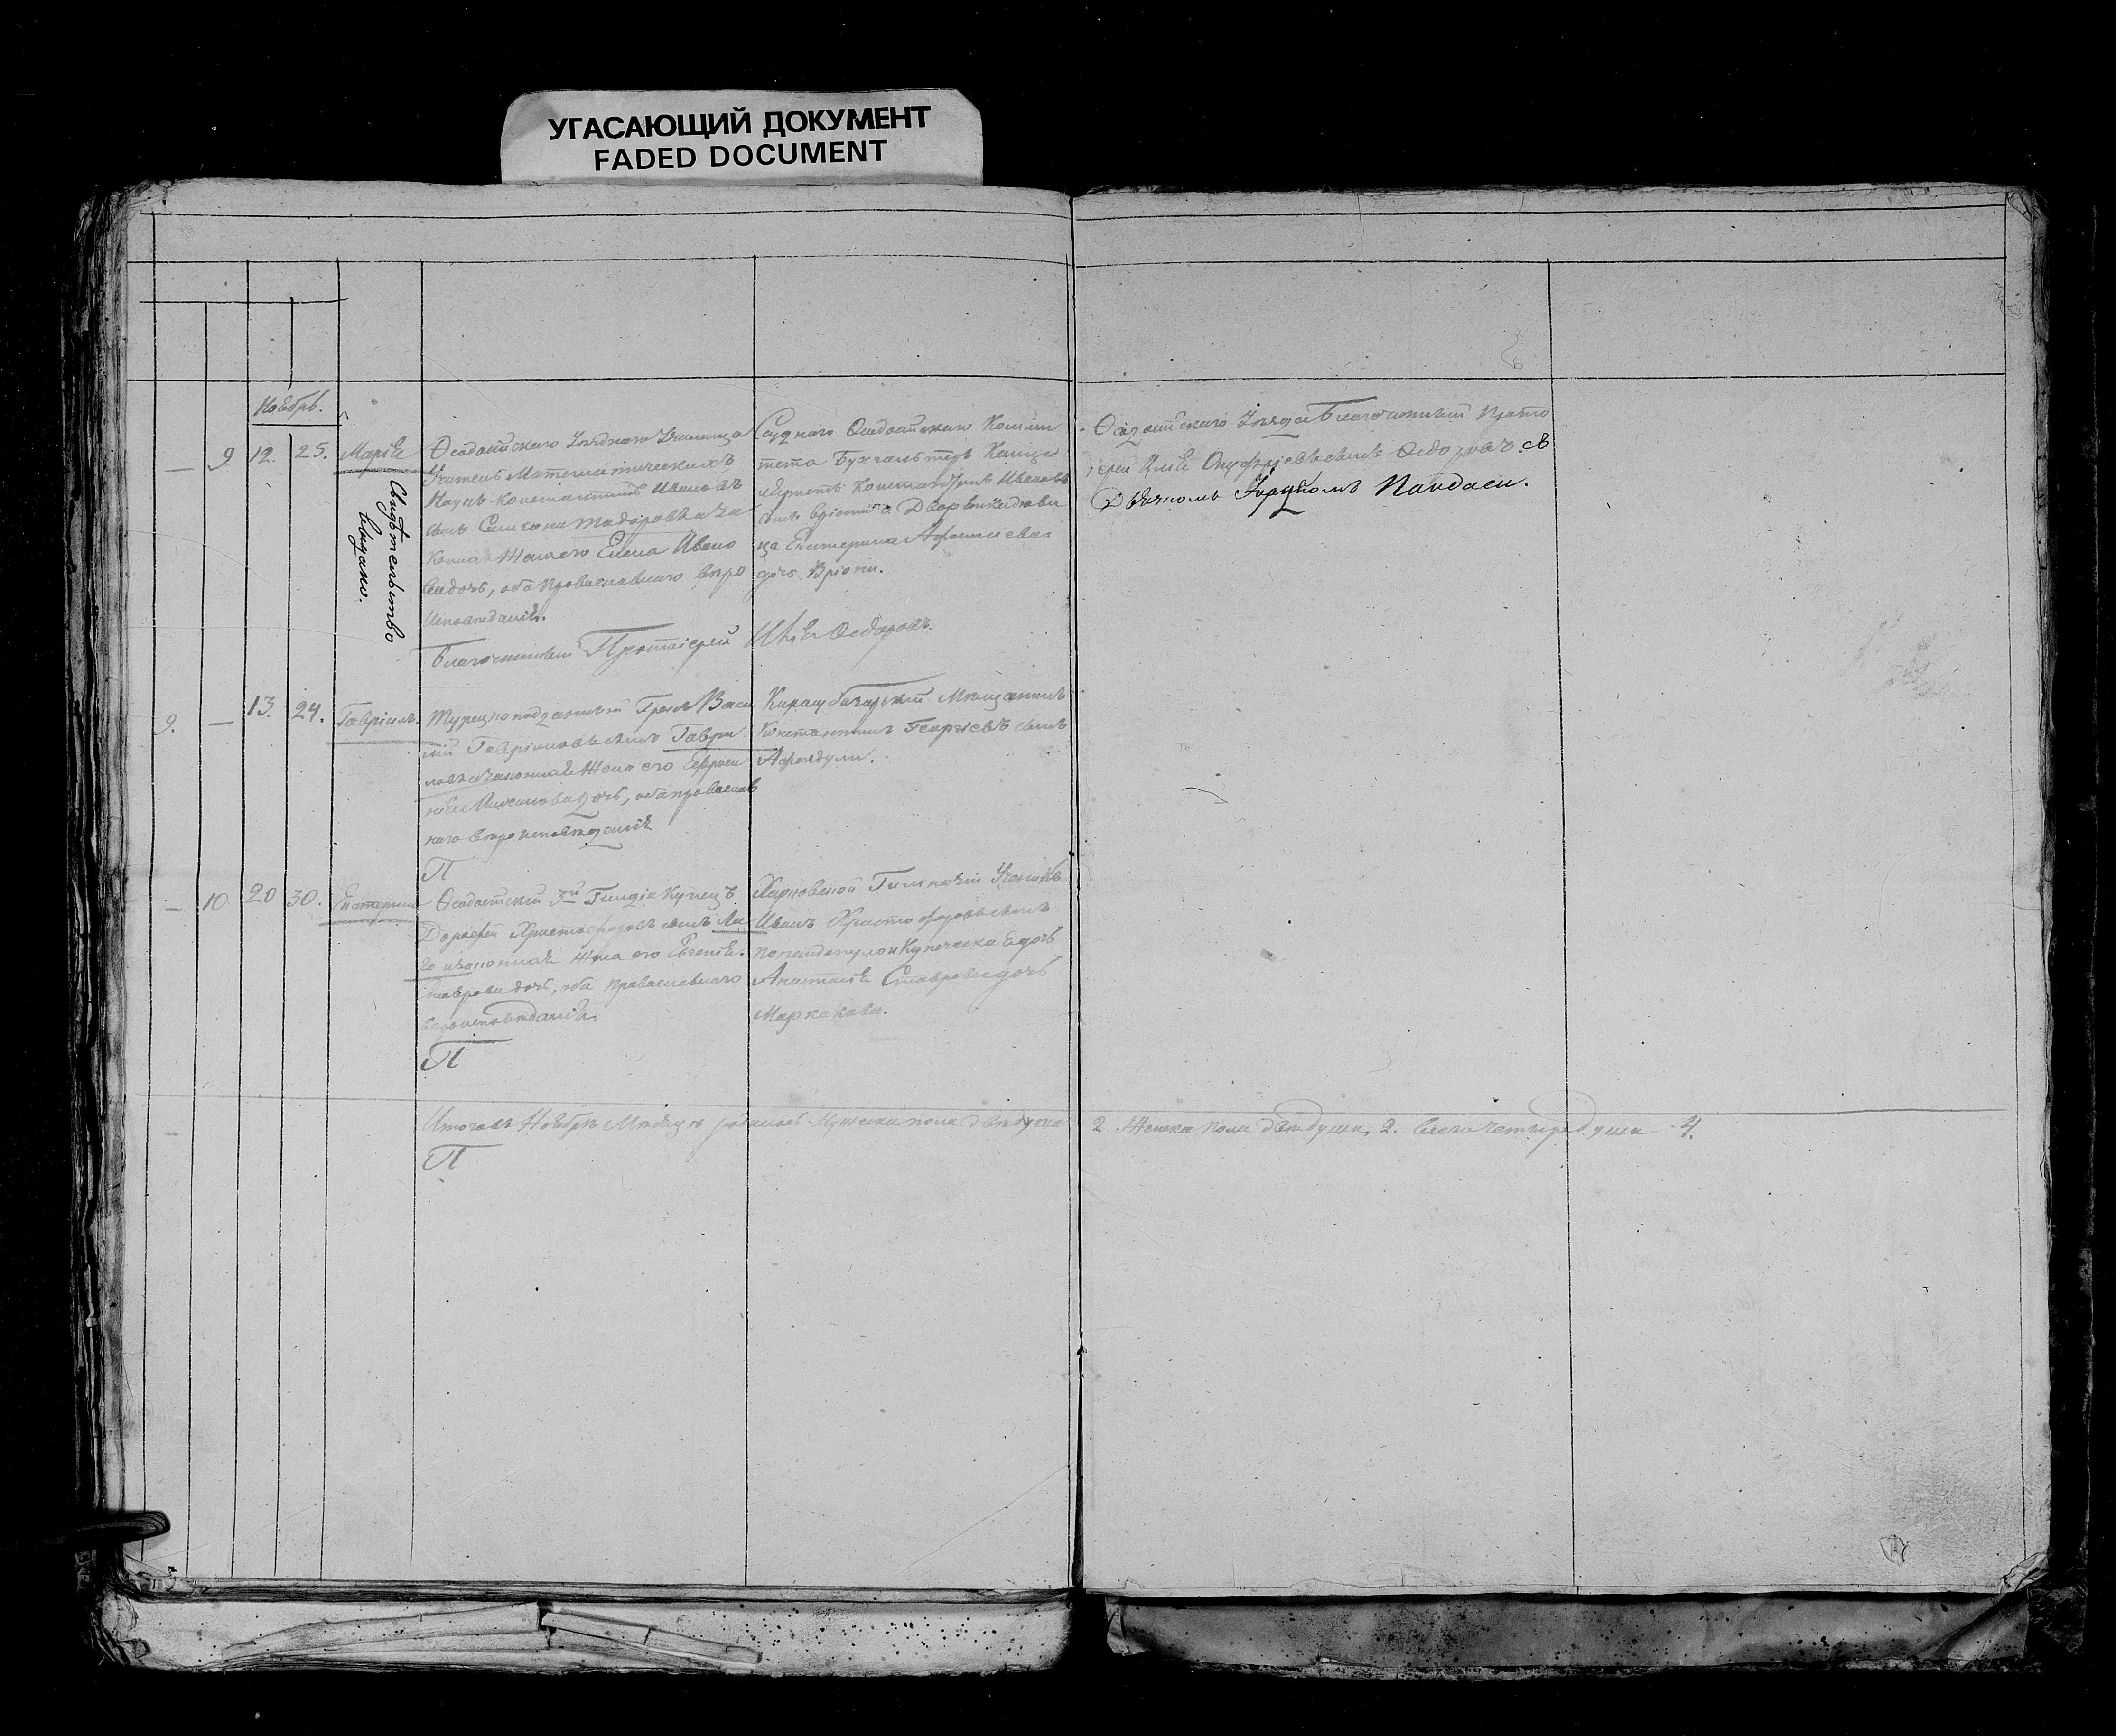 УГАСАЮЩИЙ ДОКУМЕНТ
FADED DOCUMENT
Ноябрь.
— 9 12. 25. Марія
Свидѣтельство
видано.
Ѳеодосійскаго Уѣзднаго Училища
Учитель Математическихъ
Наукъ Константинъ Ивановъ
сынъ
жена его Елена Ивано
ва дочь, оба Православнаго вѣро
исповѣданія.
Суднаго Ѳеодосійскаго Коммі
тета Бухгалтеръ Канце
Константинъ Ивановъ
сынъ
ца Екатерина Афанасіева
дочь Вріони.
Благочинный Протоіерей Илія Ѳедоровъ.
Ѳеодосійскаго Уѣзда Благочинный Прото
іерей Илія Онуфріевъ сынъ Ѳедоровъ съ
Дьячкомъ Пандаси.
9. — 13. 24. Гавріилъ.
Турецкоподданный Грекъ Васи
лій Гавріиловъ сынъ Гаври
ловъ и законная Жена его Евроси
дочь, оба православ
наго вѣроисповѣданія
П
Карасубазарскій Мѣщанинъ
Константинъ Георгіевъ сынъ
Афендули.
— 10 20 30. Екатерина
Ѳеодосійскій 3й Гильдіи Купецъ
Дорофей Христофоровъ сынъ Ла
го и законная Жена его Евгенія
Ставрова дочь, оба Православнаго
вѣроисповѣданія.
П
Харковской Гимназіи Ученикъ
Иванъ Христофоровъ сынъ
Попандопуло и Купеческа
Анастасія Ставрова дочь
Маркакова.
Итого въ Ноябрѣ Мѣсяцѣ родилось Мужеска пола двѣ душы 2. Женска пола двѣ душы, 2. всего четыре душы 4.
П